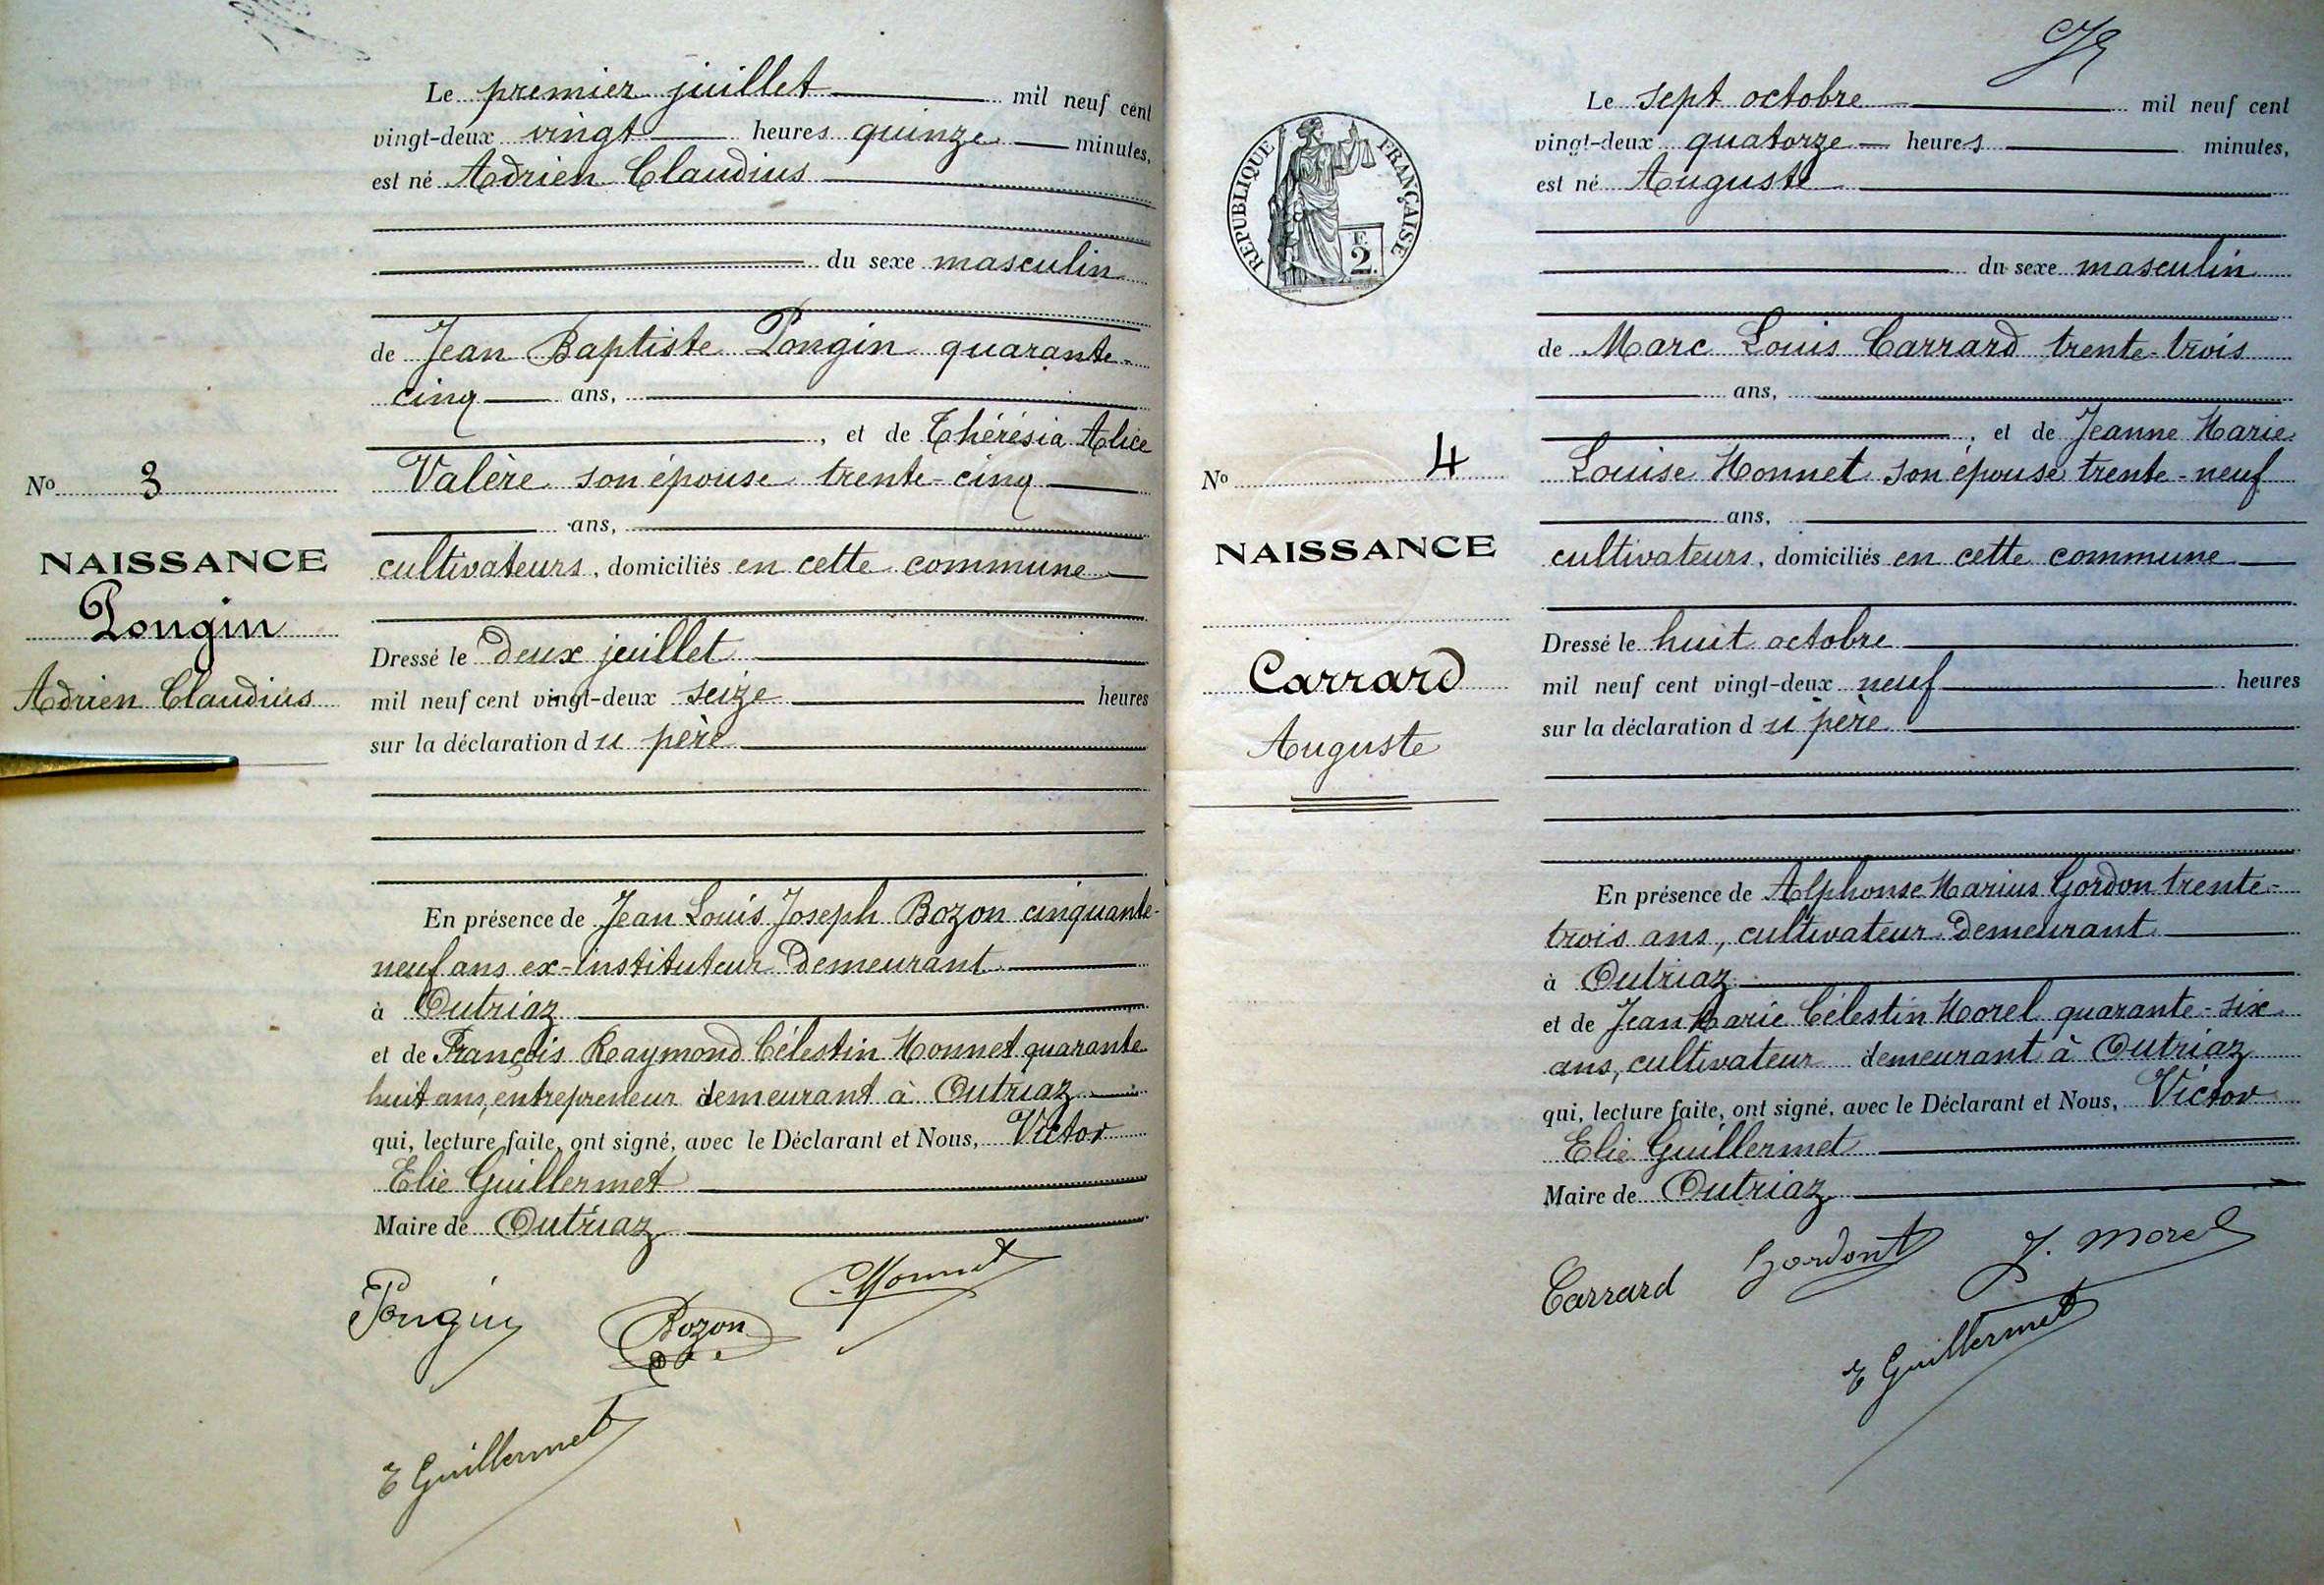 Le premier juillet mil neuf cent
vingt-deux vingt heures quinze minutes,
est né Adrien Claudius
du sexe masculin
de Jean Baptiste Pongin quarante-
cinq ans,
, et de Thérésia Alice
Valère son épouse trente-cinq
ans,
cultivateurs, domiciliés en cette commune
Dressé le deux juillet
mil neuf cent vingt-deux seize heures
sur la déclaration du père
En présence de Jean Louis Joseph Bozon cinquante-
neuf ans ex-instituteur demeurant
à Outriaz
et de François Raymond Célestin Monnet quarante
huit ans, entrepreneur demeurant à Outriaz
qui, lecture faite, ont signé, avec le Déclarant et Nous, Victor
Elie Guillermet
Maire de Outriaz
Pongin Bozon Monnet
E Guillermet
No 3
NAISSANCE
Pongin
Adrien Claudius
Le sept octobre mil neuf cent
vingt-deux quatorze heures minutes,
est né Auguste
du sexe masculin
de Marc Louis Carrard trente-trois
ans,
, et de Jeanne Marie
Louise Monnet son épouse trente-neuf
ans,
cultivateurs, domiciliés en cette commune
Dressé le huit octobre
mil neuf cent vingt-deux neuf heures
sur la déclaration du père
En présence de Alphonse Marius Gordon trente-
trois ans, cultivateur demeurant
à Outriaz
et de Jean Marie Célestin Morel quarante-six
ans, cultivateur demeurant à Outriaz
qui, lecture faite, ont signé, avec le Déclarant et Nous, Victor
Elie Guillermet
Maire de Outriaz
Carrard Gordont J. Morel
E Guillermet
RÉPUBLIQUE FRANÇAISE
F.
2.
No 4
NAISSANCE
Carrard
Auguste